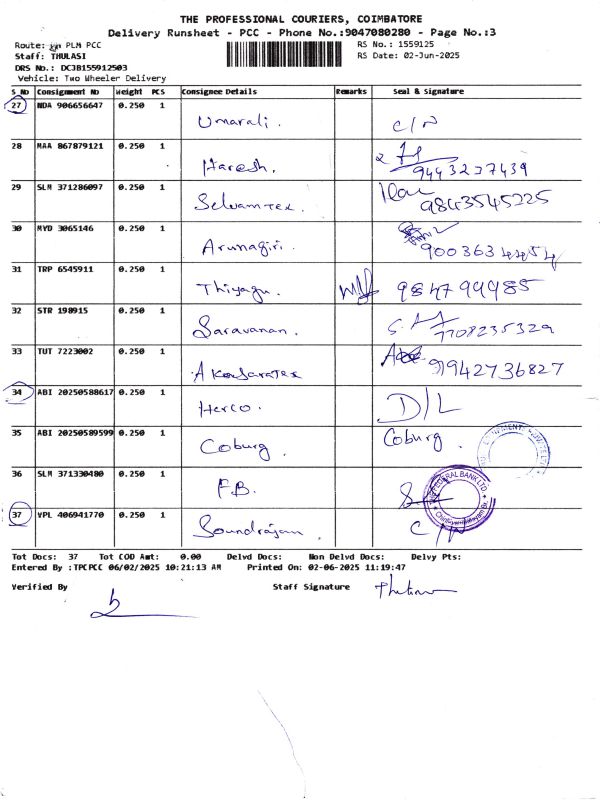 THE PROFESSIONAL COURIERS, COIMBATORE
Delivery Runsheet - PCC - Phone No.:9047080280 - Page No.:3
Route: PLM PCC
RS No.: 1559125
Staff: THULASI
RS Date: 02-Jun-2025
DRS No.: DC3B155912503
Vehicle: Two Wheeler Delivery
S_No Consignment No Weight PCS Consignee Details Remarks Seal & Signature
27 NDA 906656647 0.250 1 Umarali. C/N
28 MAA 867879121 0.250 1 Haresh. 9443227439
29 SLM 371286097 0.250 1 Selvamtex. 9843545225
30 MYD 3065146 0.250 1 Arunagiri.
31 TRP 6545911 0.250 1 Thiyagu.
32 STR 198915 0.250 1 Saravanan. 7708235329
33 TUT 7223002 0.250 1 9942736827
34 ABI 20250588617 0.250 1 Herco. D/L
35 ABI 20250589599 0.250 1 Coburg. Coburg.
36 SLM 371330480 0.250 1 F.B.
FEDERAL BANK LTD.
37 VPL 406941770 0.250 1 Soundrajan C/N
Tot Docs: 37 Tot COD Amt: 0.00 Delvd Docs: Non Delvd Docs: Delvy Pts:
Entered By :TPCPCC 06/02/2025 10:21:13 AM Printed On: 02-06-2025 11:19:47
Verified By Staff Signature